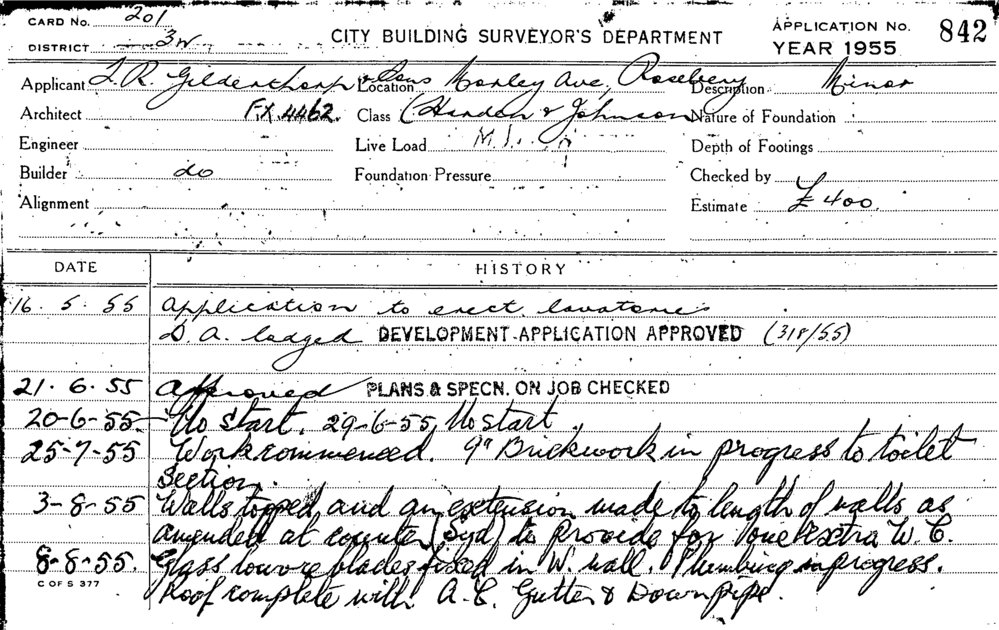 CARD No. 201
DISTRICT 3W
CITY BUILDING SURVEYOR'S DEPARTMENT
APPLICATION No. 842
YEAR 1955
Applicant T. R. Gildenthorp & Sons Location Morley Ave, Rosebery Description Minor
Architect FX 4462. Class (Harden & Johnson Nature of Foundation
Engineer Live Load M.I. Depth of Footings
Builder do Foundation Pressure Checked by
Alignment Estimate £400.
DATE HISTORY
16. 5. 55 Application to erect lavatories
D. A. lodged DEVELOPMENT APPLICATION APPROVED (318/55)
21. 6. 55 Approved PLANS & SPECN. ON JOB CHECKED
20-6-55 No Start. 29-6-55 No Start.
25-7-55 Work commenced. 9" Brickwork in progress to toilet
Section.
3-8-55 Walls topped, and an extension made to length of walls as
amended at counter (Syd) to Provide for one extra W.C.
8-8-55. Glass louvre blades fixed in W. wall. Plumbing in progress.
C OF S 377
Roof complete with A.C. Gutter & Downpipe.